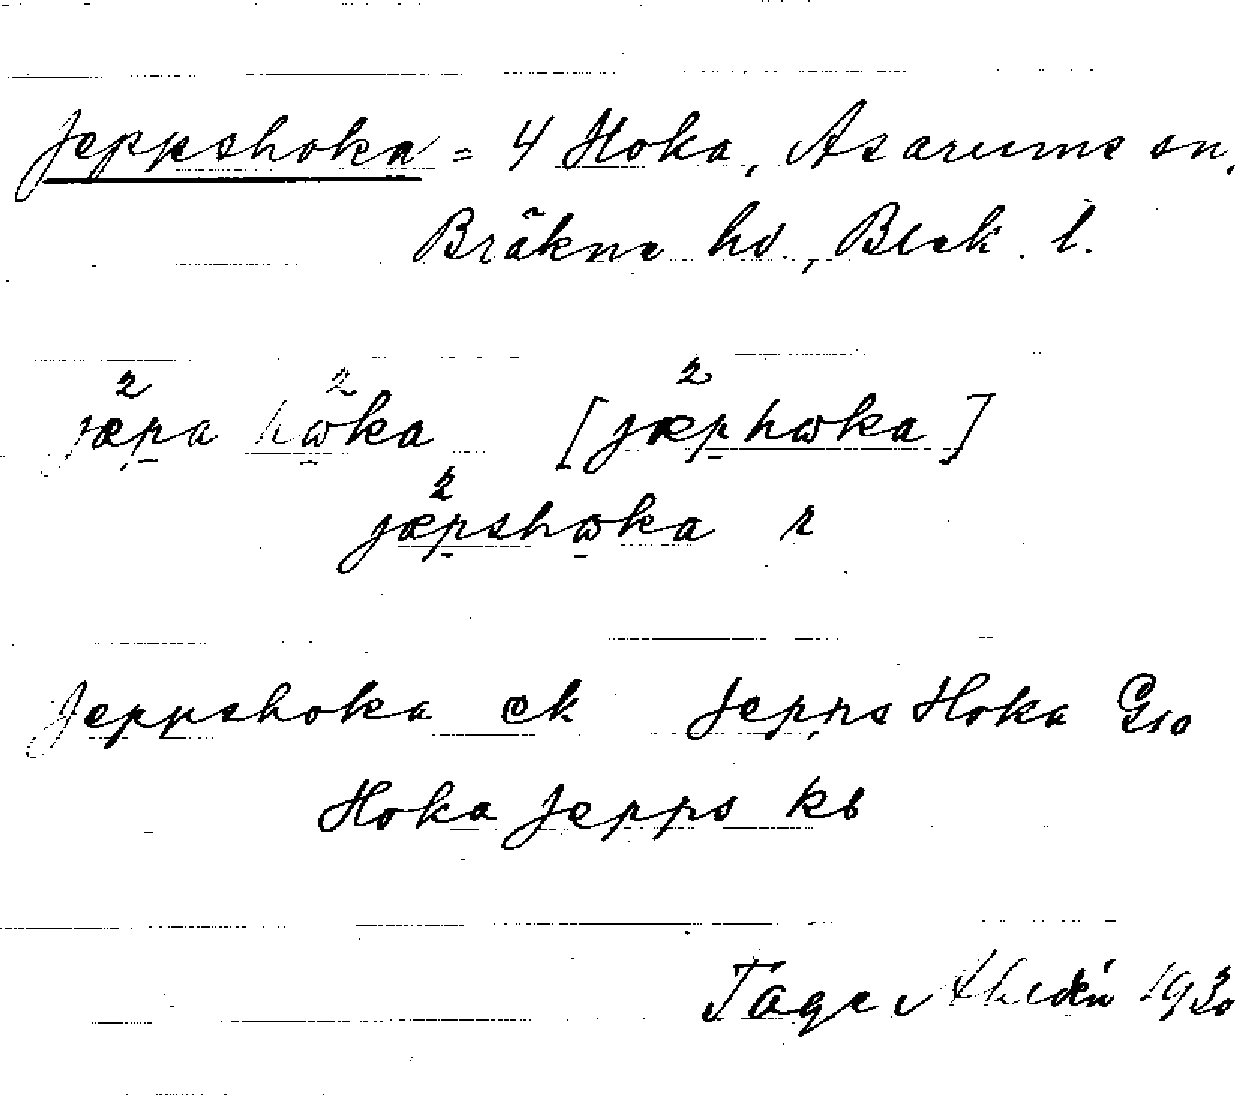 Jeppshoka = 4 Hoka, Asarums sn,
Bräkne hd., Blek. l.
jæpa hωka [jæphωka]
jæpshωka r
Jeppshoka ek Jepps Hoka G10
Hoka Jepps kb
Tage Ahldén 1930